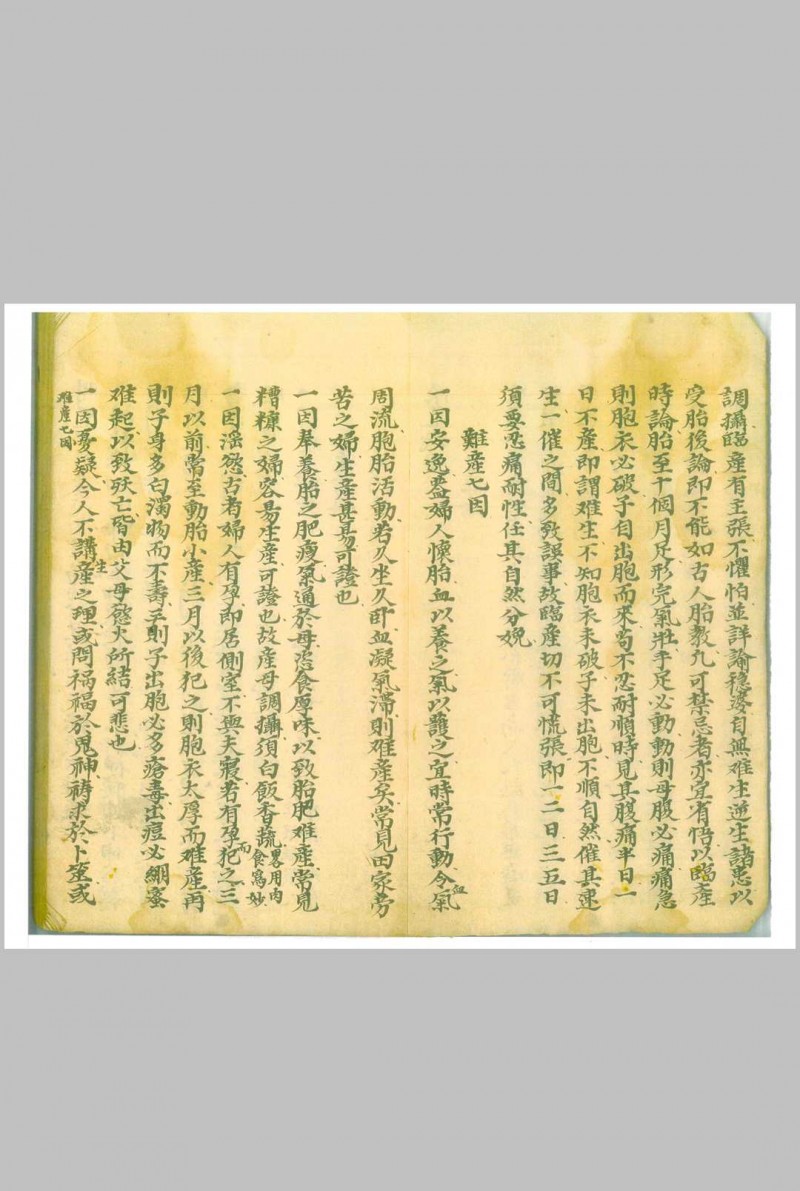 調攝臨產有主張不懼怕並詳諭穩婆自無难生逆生諸患以
受胎後論即不能如古人胎教凢可禁忌者亦宜有悟以臨產
時論胎至十個月足形完氣壯手足必動動則母腹必痛痛急
則胞衣必破子自出胞而來苟不忍耐順時見其腹痛半日一
日不產即謂难生不知胞衣未破子未出胞不順自然催其速
生一催之間多致誤事故臨產切不可慌張即一二日三五日
須要忍痛耐性任其自然分娩
難產七因
一因安逸葢婦人懷胎血以養之氣以護之宜時常行動令氣血
周流胞胎活動若久坐久卧血凝氣滯則难產矣常見田家劳
苦之婦生產甚易可證也
一因奉養胎之肥瘦氣通於母恣食厚味以致胎肥难產常見
糟糠之婦容易生產可證也故產母調攝須白飯香蔬畧用肉食爲妙
一因滛慾古者婦人有孕即居側室不與夫寢若有孕而犯之三
月以前常至動胎小產三月以後犯之則胞衣太厚而难產再
則子身多白濁物而不壽三則子出胞必多瘡毒出痘必綳蜜
难起以致殀亡皆由父母慾火所結可悲也
一因憂疑今人不講生產之理或問禍福於鬼神祷求於卜筮或
难產七因